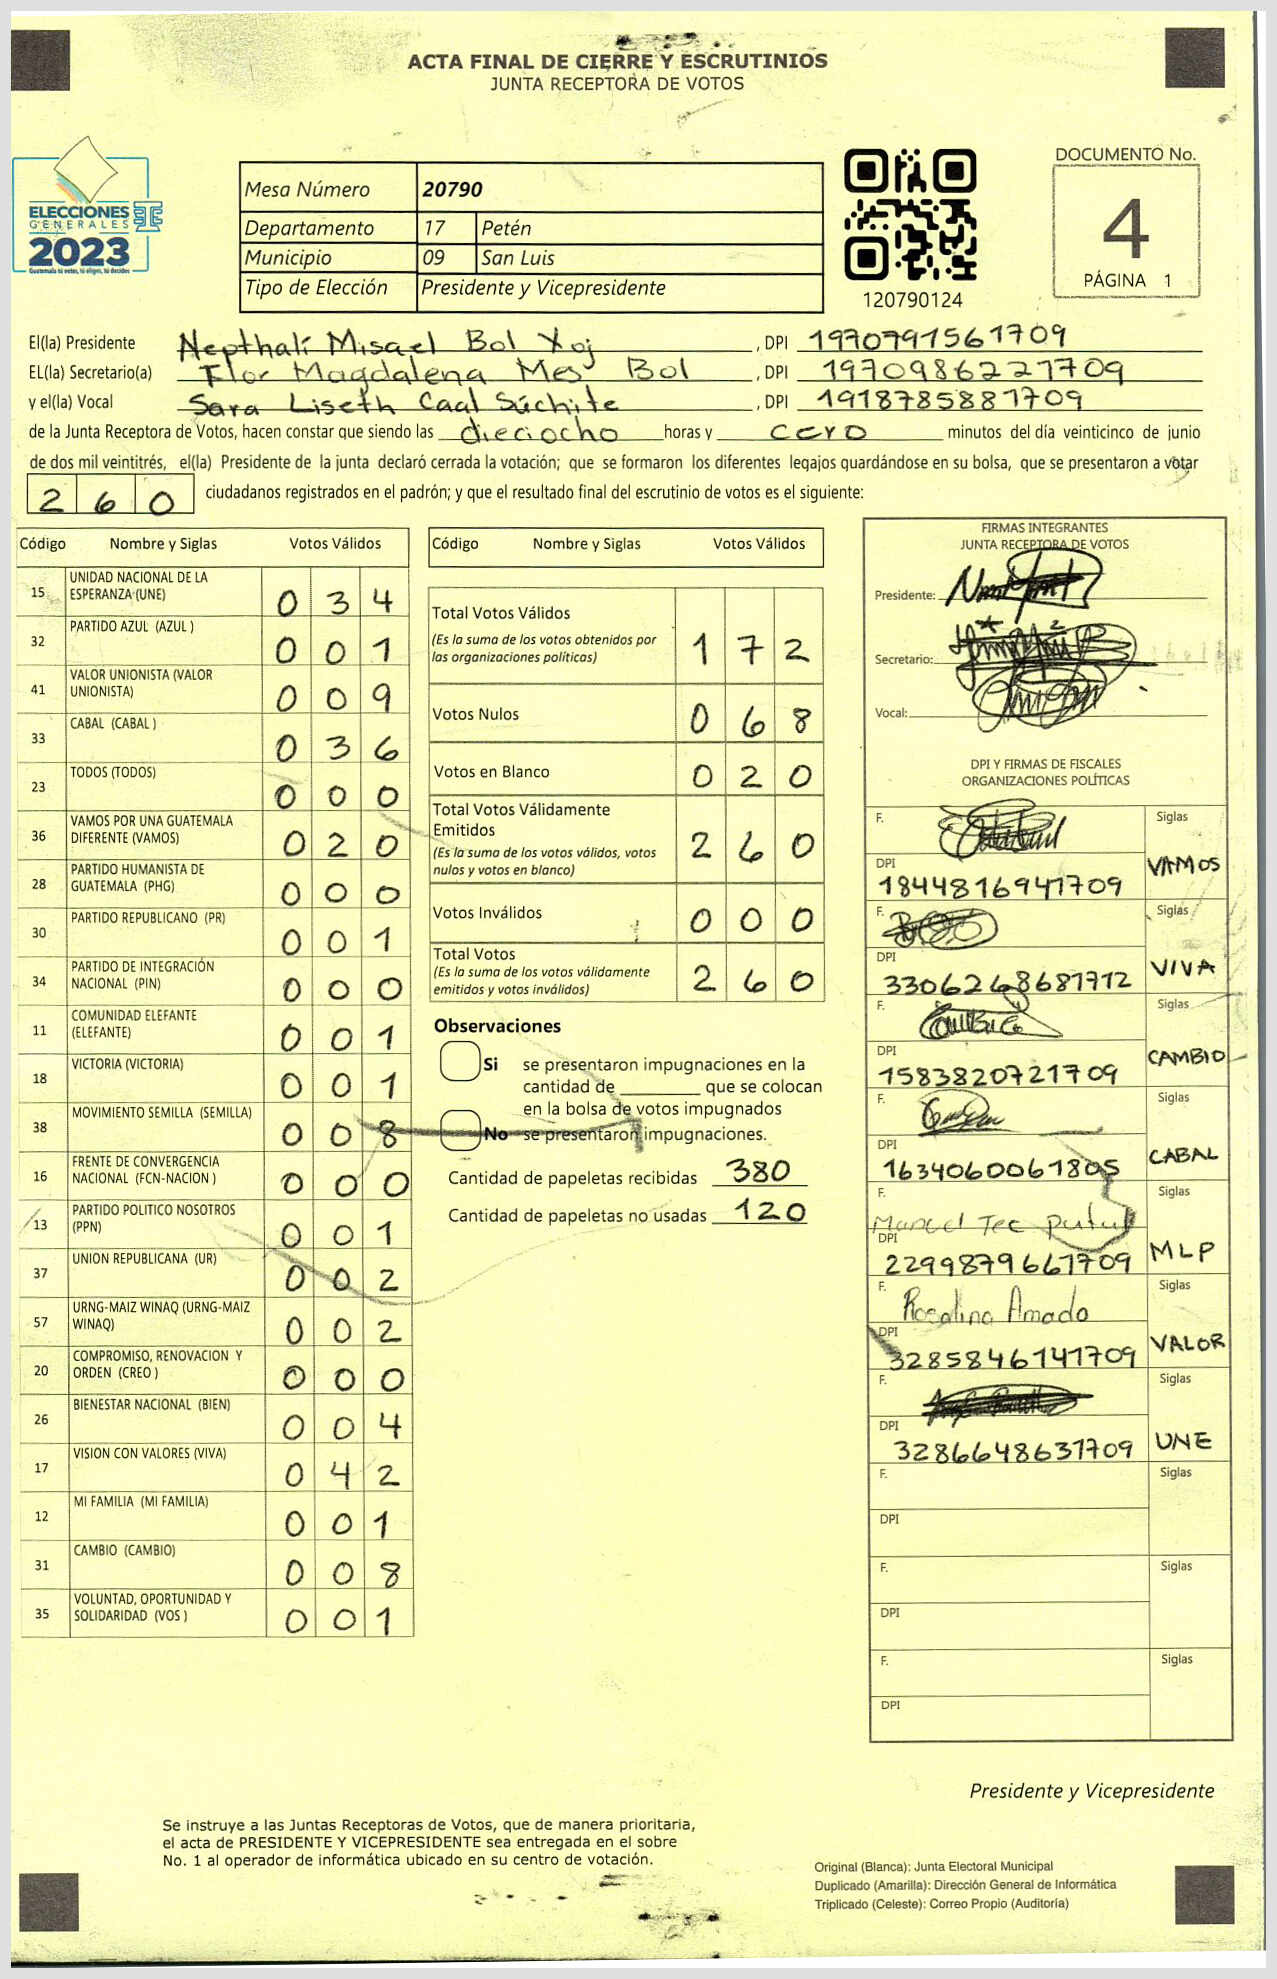 ACTA FINAL DE CIERRE Y ESCRUTINIOS
JUNTA RECEPTORA DE VOTOS
ELECCIONES
GENERALES
2023
Guatemala tú votes, tú eliges, tú decides
Mesa Número 20790
Departamento 17 Petén
Municipio 09 San Luis
Tipo de Elección Presidente y Vicepresidente
120790124
DOCUMENTO No.
4
PÁGINA 1
El(la) Presidente Nepthalí Misael Bol Xoj , DPI 1970791561709
EL(la) Secretario(a) Flor Magdalena Mes Bol , DPI 1970986221709
y el(la) Vocal Sara Liseth Caal Súchite , DPI 1918785881709
de la Junta Receptora de Votos, hacen constar que siendo las dieciocho horas y cero minutos del día veinticinco de junio
de dos mil veintitrés, el(la) Presidente de la junta declaró cerrada la votación; que se formaron los diferentes legajos guardándose en su bolsa, que se presentaron a votar
260 ciudadanos registrados en el padrón; y que el resultado final del escrutinio de votos es el siguiente:
Código Nombre y Siglas Votos Válidos
15 UNIDAD NACIONAL DE LA ESPERANZA (UNE) 0 3 4
32 PARTIDO AZUL (AZUL ) 0 0 1
41 VALOR UNIONISTA (VALOR UNIONISTA) 0 0 9
33 CABAL (CABAL ) 0 3 6
23 TODOS (TODOS) 0 0 0
36 VAMOS POR UNA GUATEMALA DIFERENTE (VAMOS) 0 2 0
28 PARTIDO HUMANISTA DE GUATEMALA (PHG) 0 0 0
30 PARTIDO REPUBLICANO (PR) 0 0 1
34 PARTIDO DE INTEGRACIÓN NACIONAL (PIN) 0 0 0
11 COMUNIDAD ELEFANTE (ELEFANTE) 0 0 1
18 VICTORIA (VICTORIA) 0 0 1
38 MOVIMIENTO SEMILLA (SEMILLA) 0 0 8
16 FRENTE DE CONVERGENCIA NACIONAL (FCN-NACION ) 0 0 0
13 PARTIDO POLITICO NOSOTROS (PPN) 0 0 1
37 UNION REPUBLICANA (UR) 0 0 2
57 URNG-MAIZ WINAQ (URNG-MAIZ WINAQ) 0 0 2
20 COMPROMISO, RENOVACION Y ORDEN (CREO ) 0 0 0
26 BIENESTAR NACIONAL (BIEN) 0 0 4
17 VISION CON VALORES (VIVA) 0 4 2
12 MI FAMILIA (MI FAMILIA) 0 0 1
31 CAMBIO (CAMBIO) 0 0 8
35 VOLUNTAD, OPORTUNIDAD Y SOLIDARIDAD (VOS ) 0 0 1
Código Nombre y Siglas Votos Válidos
Total Votos Válidos 1 7 2
(Es la suma de los votos obtenidos por
las organizaciones políticas)
Votos Nulos 0 6 8
Votos en Blanco 0 2 0
Total Votos Válidamente
Emitidos 2 6 0
(Es la suma de los votos válidos, votos
nulos y votos en blanco)
Votos Inválidos 0 0 0
Total Votos 2 6 0
(Es la suma de los votos válidamente
emitidos y votos inválidos)
Observaciones
Si se presentaron impugnaciones en la
cantidad de ________ que se colocan
en la bolsa de votos impugnados
No se presentaron impugnaciones.
Cantidad de papeletas recibidas 380
Cantidad de papeletas no usadas 120
FIRMAS INTEGRANTES
JUNTA RECEPTORA DE VOTOS
Presidente:
Secretario:
Vocal:
DPI Y FIRMAS DE FISCALES
ORGANIZACIONES POLÍTICAS
F. Siglas
DPI 1844816941709 VAMOS
F. Siglas
DPI 3306268681712 VIVA
F. Siglas
DPI 1583820721709 CAMBIO
F. Siglas
DPI 1634060061805 CABAL
F. Manuel Tec Siglas
DPI 2299879661709 MLP
F. Rosalino Amado Siglas
DPI 3285846141709 VALOR
F. Siglas
DPI 3286648631709 UNE
F. Siglas
DPI
F. Siglas
DPI
F. Siglas
DPI
Presidente y Vicepresidente
Se instruye a las Juntas Receptoras de Votos, que de manera prioritaria,
el acta de PRESIDENTE Y VICEPRESIDENTE sea entregada en el sobre
No. 1 al operador de informática ubicado en su centro de votación.
Original (Blanca): Junta Electoral Municipal
Duplicado (Amarilla): Dirección General de Informática
Triplicado (Celeste): Correo Propio (Auditoría)